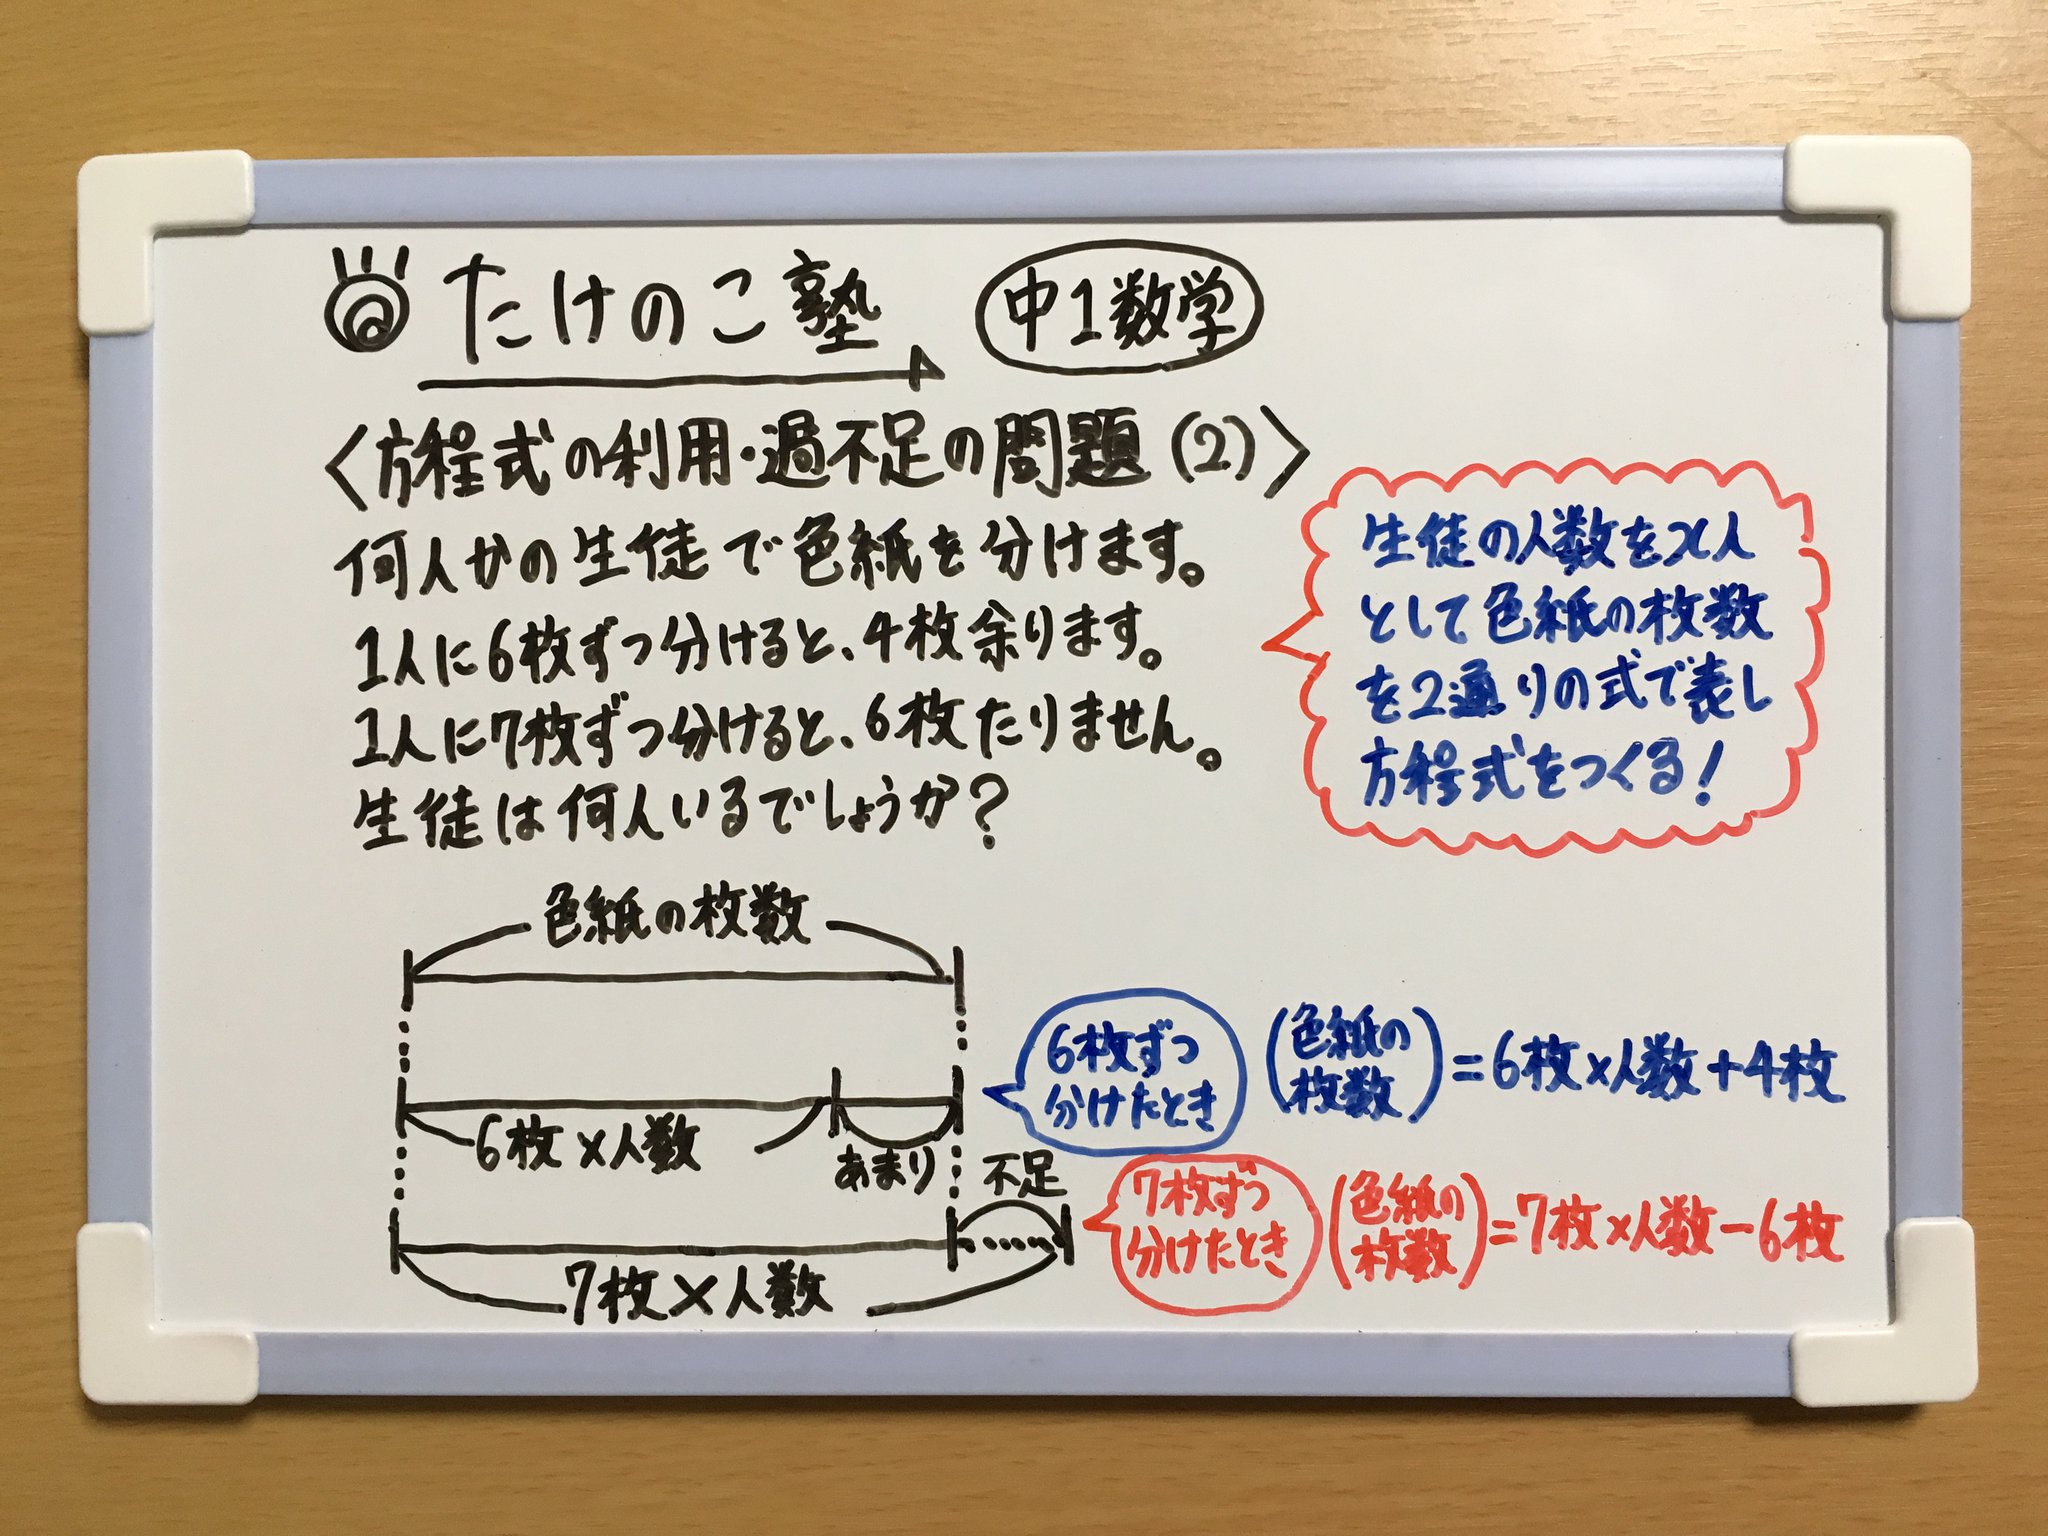 たけのこ塾 中1数学
〈方程式の利用・過不足の問題(2)〉
何人かの生徒で色紙を分けます。
1人に6枚ずつ分けると、4枚余ります。
1人に7枚ずつ分けると、6枚たりません。
生徒は何人いるでしょうか?
生徒の人数をx人
として色紙の枚数
を2通りの式で表し
方程式をつくる!
色紙の枚数
6枚×人数
あまり
6枚ずつ
分けたとき
(色紙の枚数)=6枚×人数+4枚
不足
7枚×人数
7枚ずつ
分けたとき
(色紙の枚数)=7枚×人数-6枚